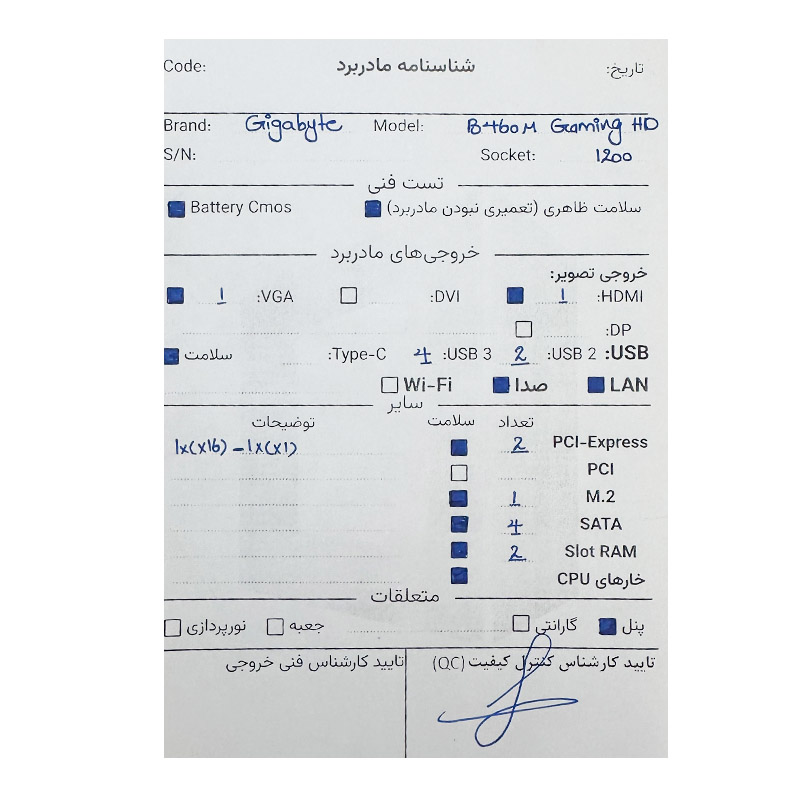 Code: شناسنامه مادربرد تاریخ:
Brand: Gigabyte Model: B460M Gaming HD
S/N: Socket: 1200
تست فنی
سلامت ظاهری (تعمیری نبودن مادربرد) Battery Cmos
خروجی‌های مادربرد
خروجی تصویر:
HDMI: 1 DVI: VGA: 1
DP:
USB: USB 2: 2 USB 3: 4 Type-C: سلامت
LAN صدا Wi-Fi
سایر
تعداد سلامت توضیحات
PCI-Express 2 1x(x16) - 1x(x1)
PCI
M.2 1
SATA 4
Slot RAM 2
خارهای CPU
متعلقات
پنل گارانتی جعبه نورپردازی
تایید کارشناس کنترل کیفیت (QC) تایید کارشناس فنی خروجی